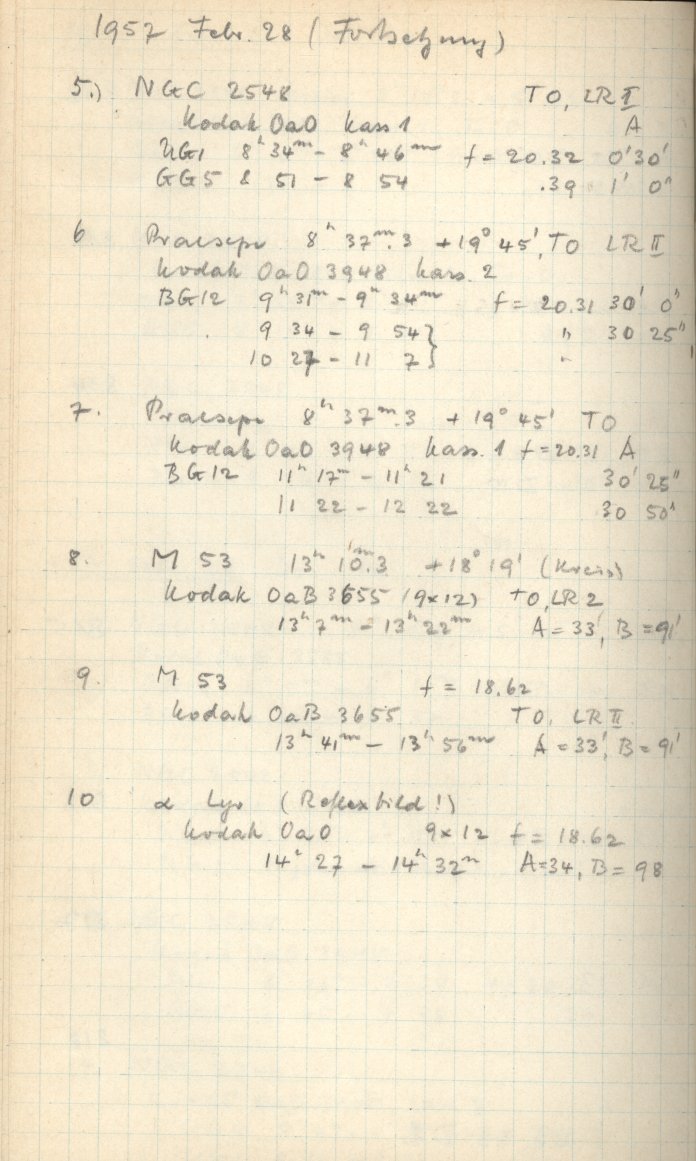 1957 Febr. 28 (Fortsetzung)
5.) NGC 2548 TO, LR II
Kodak OaO Kass 1 A
UG1 8h 34m – 8h 46m f = 20.32 0' 30'
GG5 8 51 – 8 54 .39 1' 0"
6 Praesepe 8h 37m.3 +19° 45', TO LR II
Kodak OaO 3948 Kass. 2
BG12 9h 31m – 9h 34m f = 20.31 30' 0"
9 34 – 9 54 } " 30 25"
10 27 – 11 7 } "
7. Praesepe 8h 37m.3 +19° 45' TO
Kodak OaO 3948 Kass. 1 f = 20.31 A
BG12 11h 17m – 11h 21 30' 25"
11 22 – 12 22 30 50"
8. M 53 13h 10m.3 +18° 19' (Kreis)
Kodak OaB 3655 (9×12) TO, LR 2
13h 7m – 13h 22m A = 33', B = 91'
9. M 53 f = 18.62
Kodak OaB 3655 TO, LR II.
13h 41m – 13h 56m A = 33', B = 91'
10 α Lyr (Reflexbild!)
Kodak OaO 9×12 f = 18.62
14h 27 – 14h 32m A=34, B = 98